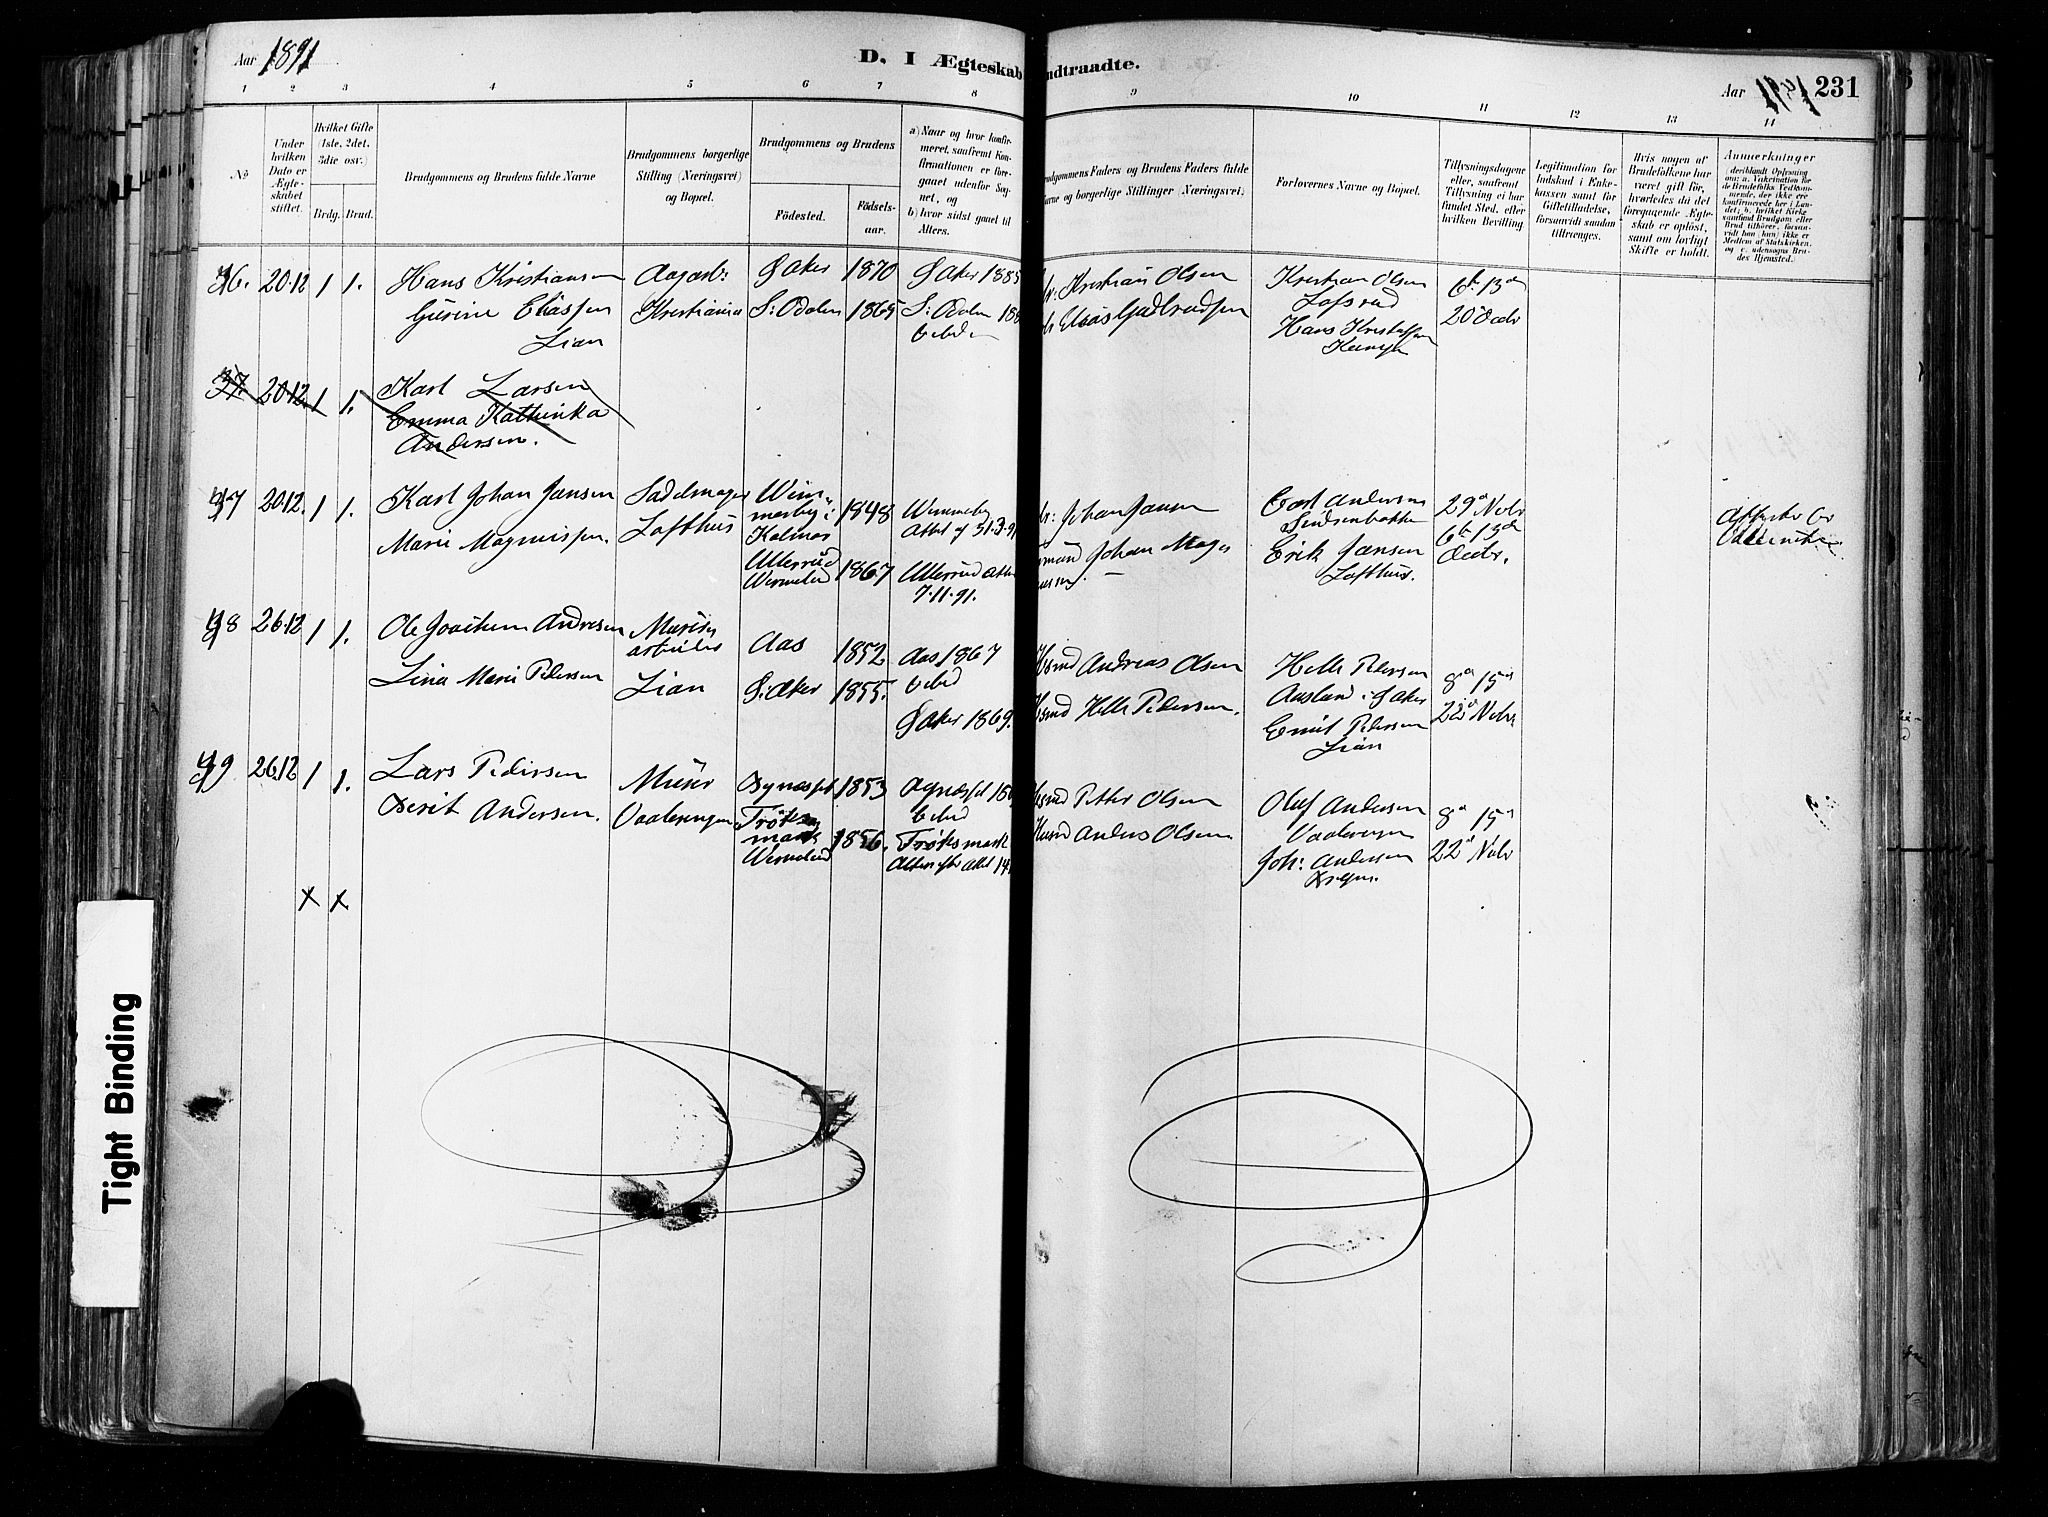 Aar 1891
D. I Ægteskab
1 2 3 4 5 6 7 8
№
Under hvilken Dato er Ægteskabet stiftet.
Hvilket Gifte (1ste, 2det, 3die osv.)
Brdg. Brud.
Brudgommens og Brudens fulde Navne
Brudgommens borgerlige Stilling (Næringsvei) og Bopæl.
Brudgommens og Brudens
Fødested.
Fødselsaar.
a) Naar og hvor konfirmeret, samt om Konfirmationen er foregaaet udenfor Sognet, og
b) hvor sidst gaaet til Alters.
36. 20.12 1 1. Hans Kristiansen Ø Aker 1870
Gurine Eliassen Kristiania S: Odalen 1865 S: Odalen
Lian
37. 20.12. 1 1. Karl Larsen
Emma Kathinka
Andersen.
37 20.12. 1 1. Karl Johan Jansen Sadelmager Wimmerby i Kalmar 1848 Wimmerby Attest af 31.3.91
Marie Magnussen. Lofthus Ullerrud Wermeland 1867 Ullerrud Attest 7.11.91.
38 26.12 1 1. Ole Joachim Andresen Murerarbeider Aas 1852 Aas 1867
Lina Marie Pedersen Lian Ø: Aker 1855. Ø Aker 1869.
39 26.12 1 1. Lars Pedersen Murer 1853
Berit Andersen. Vaaleringen Trøksmark Wermeland 1856. Trøksmark
x x
Tight Binding
ndtraadte.
Aar 1891 231
9 10 11 12 13 14
udgommens Faders og Brudens Faders fulde
avne og borgerlige Stillinger (Næringsvei).
Forlovernes Navne og Bopæl.
Tillysningsdagene eller, saafremt Tillysning ei har fundet Sted, efter hvilken Bevilling.
Legitimation for Indskud i Enkekassen samt for Giftetilladelse, forsaavidt saadan tiltrænges.
Hvis nogen af Brudefolkene har været gift før, hvorledes da det foregaaende Ægteskab er opløst, samt om lovligt Skifte er holdt.
Anmærkninger
Kristian Olsen Kristian Olsen 6te 13de
Elias Gudbrandsen Lofsrud 20de Decbr
Hans Kristoffersen
Johan Jansen Carl Andersen 29de Novbr
Sindsenbakken 6te 13de
Johan Magnussen. Erik Jansen Decbr.
Lofthus.
Husmd Andreas Olsen Helle Pedersen 8de 15de
Ausland i Ø Aker
Husmd Helle Pedersen. Emil Pedersen 22de Novbr
Lian
Husmd Petter Olsen Oluf Andersen 8de 15de
Vaaleringen
Husmd Anders Olsen Joh: Andersen 22de Novbr